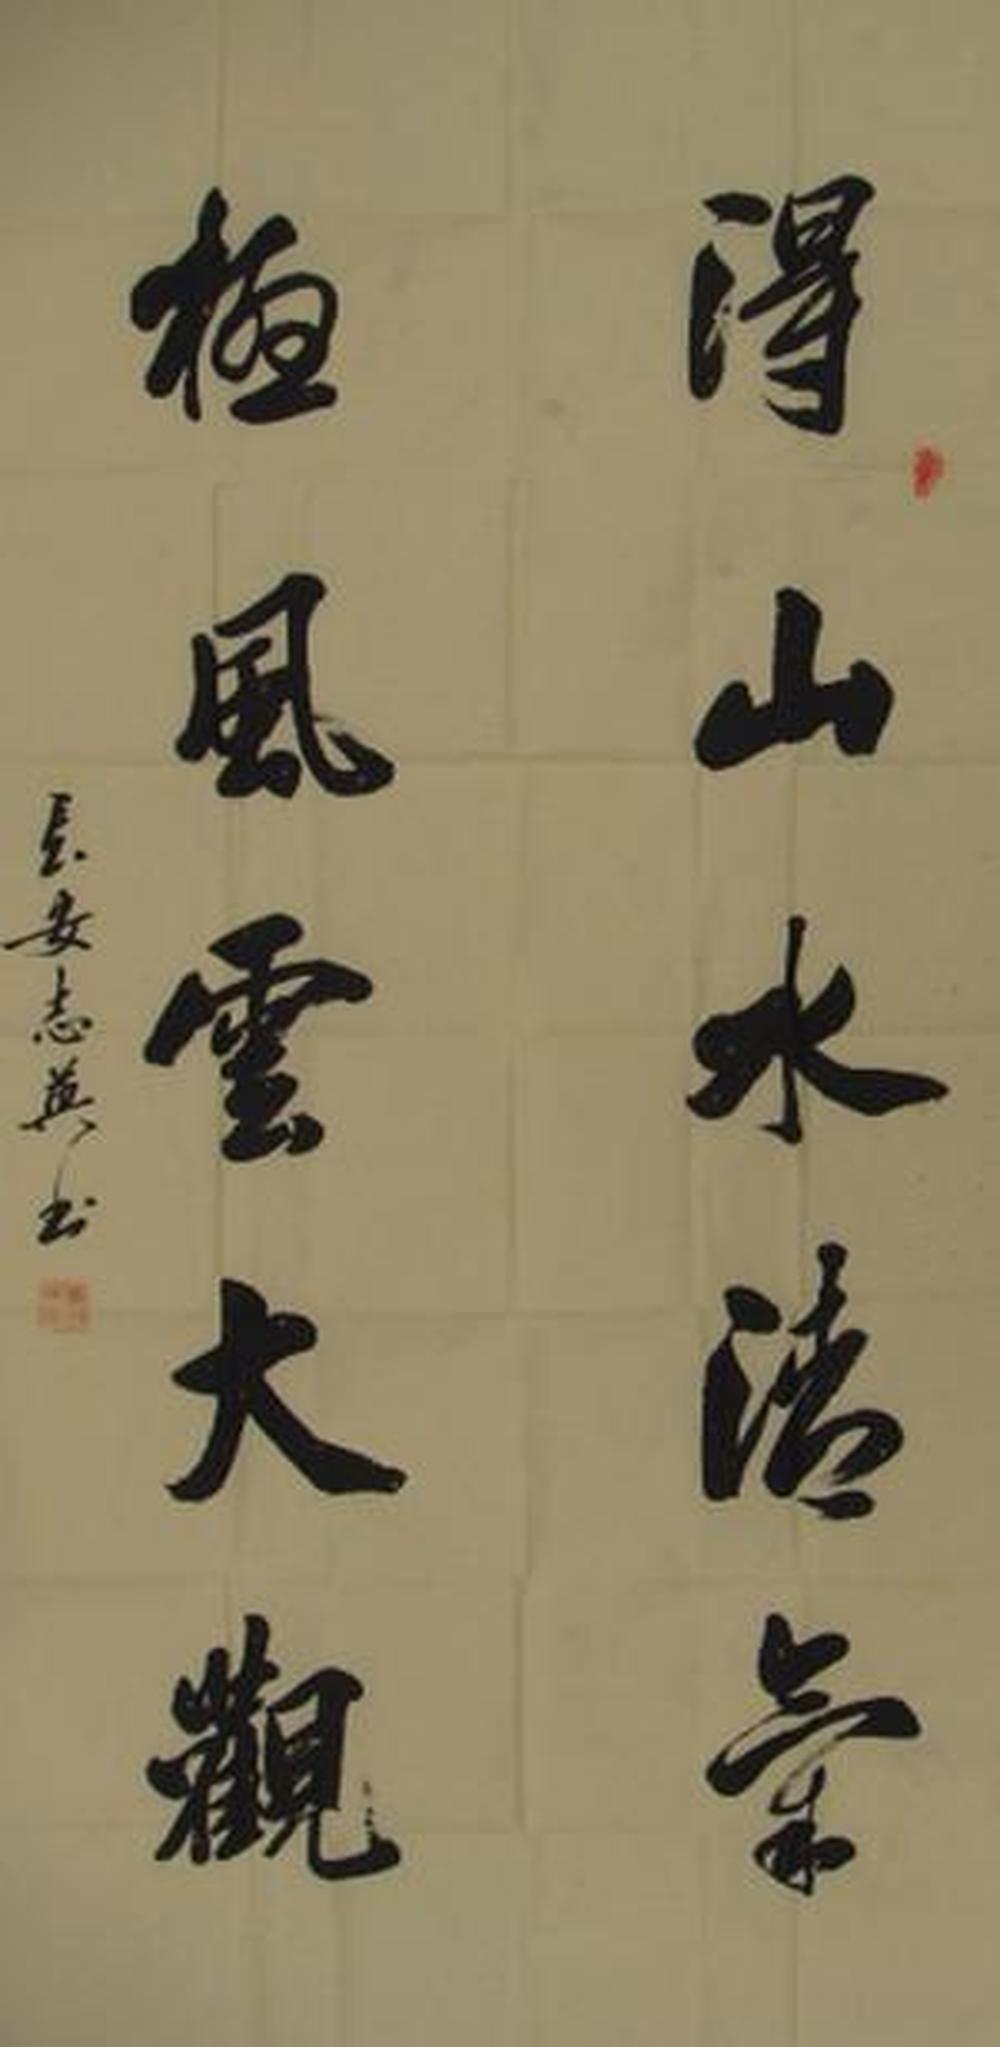 得山水清氣
極風雲大觀
長安志英书